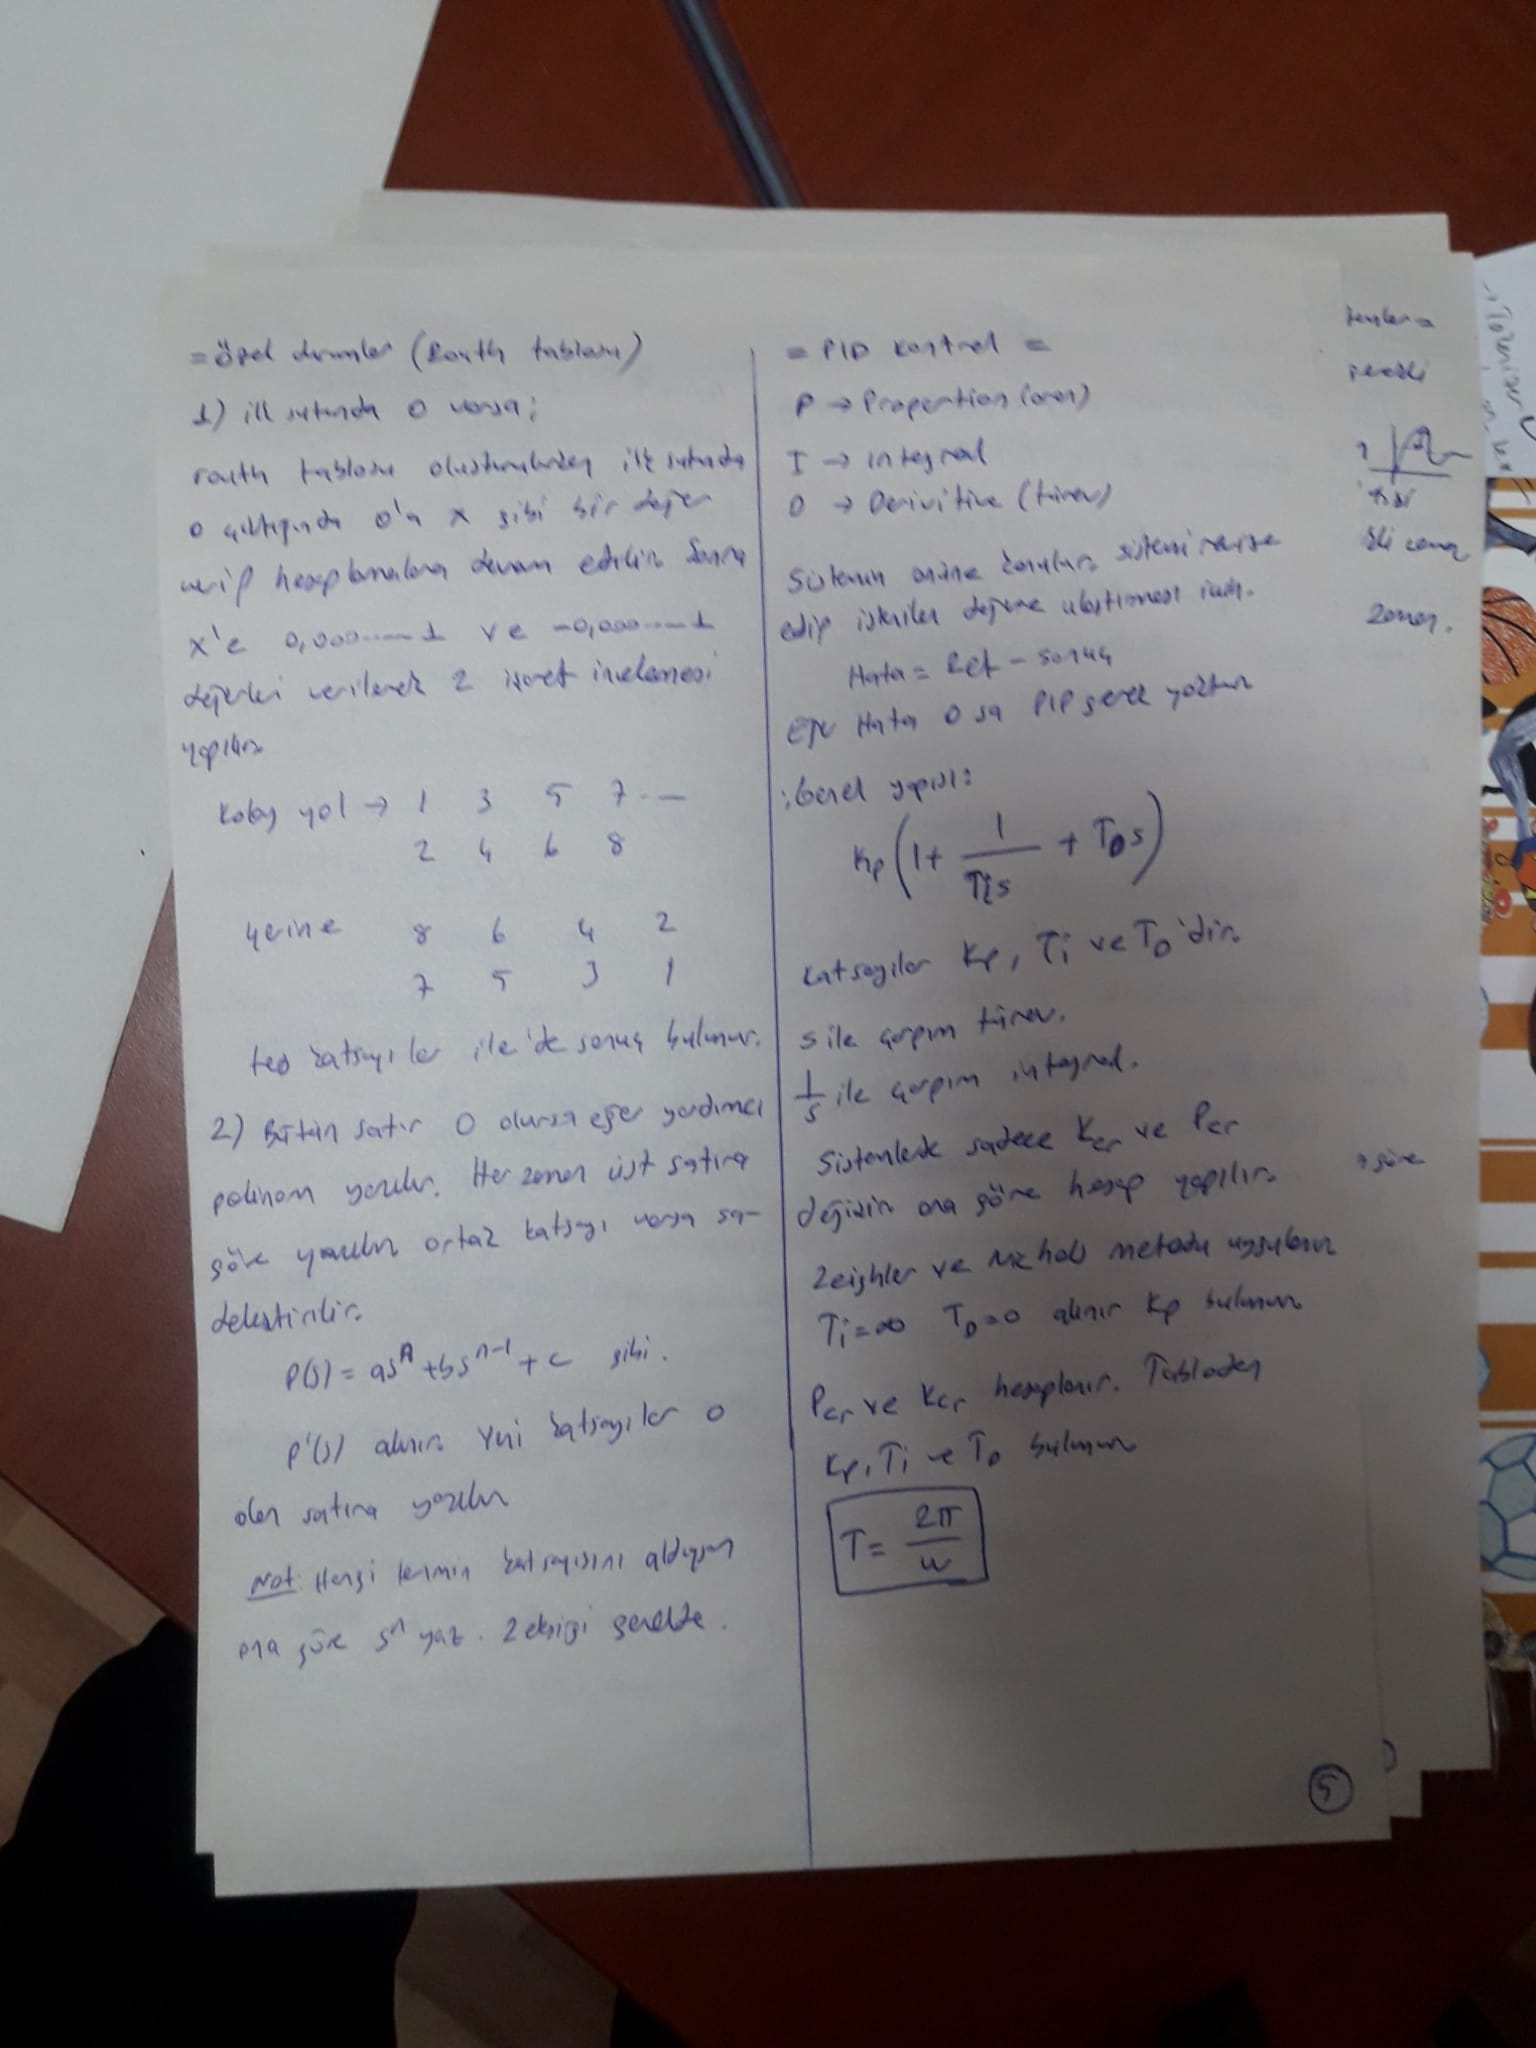 = Özel durumlar (Routh tablosu)
1) ilk sutunda 0 varsa;
routh tablosu oluşturulurken ilk sutunda
0 çıktığında 0'a x gibi bir değer
verip hesaplamalara devam edilir. Sonra
x'e 0,000......1 ve -0,000.....1
değerleri verilerek 2 işaret incelemesi
yapılır.
Kolay yol → 1 3 5 7 . —
2 4 6 8
yerine 8 6 4 2
7 5 3 1
ters katsayılar ile'de sonuç bulunur.
2) Bütün satır 0 olursa eğer yardımcı
polinom yazılır. Her zaman üst satıra
göre yazılır ortak katsayı varsa sa-
deleştirilir.
P(s) = as^n + bs^n-1 + c gibi.
P'(s) alınır. Yeni katsayılar 0
olan satıra yazılır
Not: Hangi termin katsayısını aldıysan
ona göre s^n yaz. 2 eksiği gerekte.
= PID kontrol =
P → Propertion (oran)
I → integral
D → Derivitive (türev)
Sistemin önüne konulur. sistemi revize
edip istenilen değere ulaştırması için.
Hata = Ref - sonuç
Eğer Hata 0 sa PIP gerek yoktur
Genel yapısı:
Kp (1 + 1/Tis + TDs)
Katsayılar Kp, Ti ve TD'dir.
s ile çarpım türev.
1/s ile çarpım integral.
Sistemlerde sadece Kcr ve Pcr
değişir ona göre hesap yapılır.
Zeighler ve Nichols metodu uygulanır
Ti=∞ TD=0 alınır Kp bulunur.
Pcr ve Kcr hesaplanır. Tablodan
Kp, Ti ve TD bulunur
T = 2π/w
5
gerekli
zaman.
göre